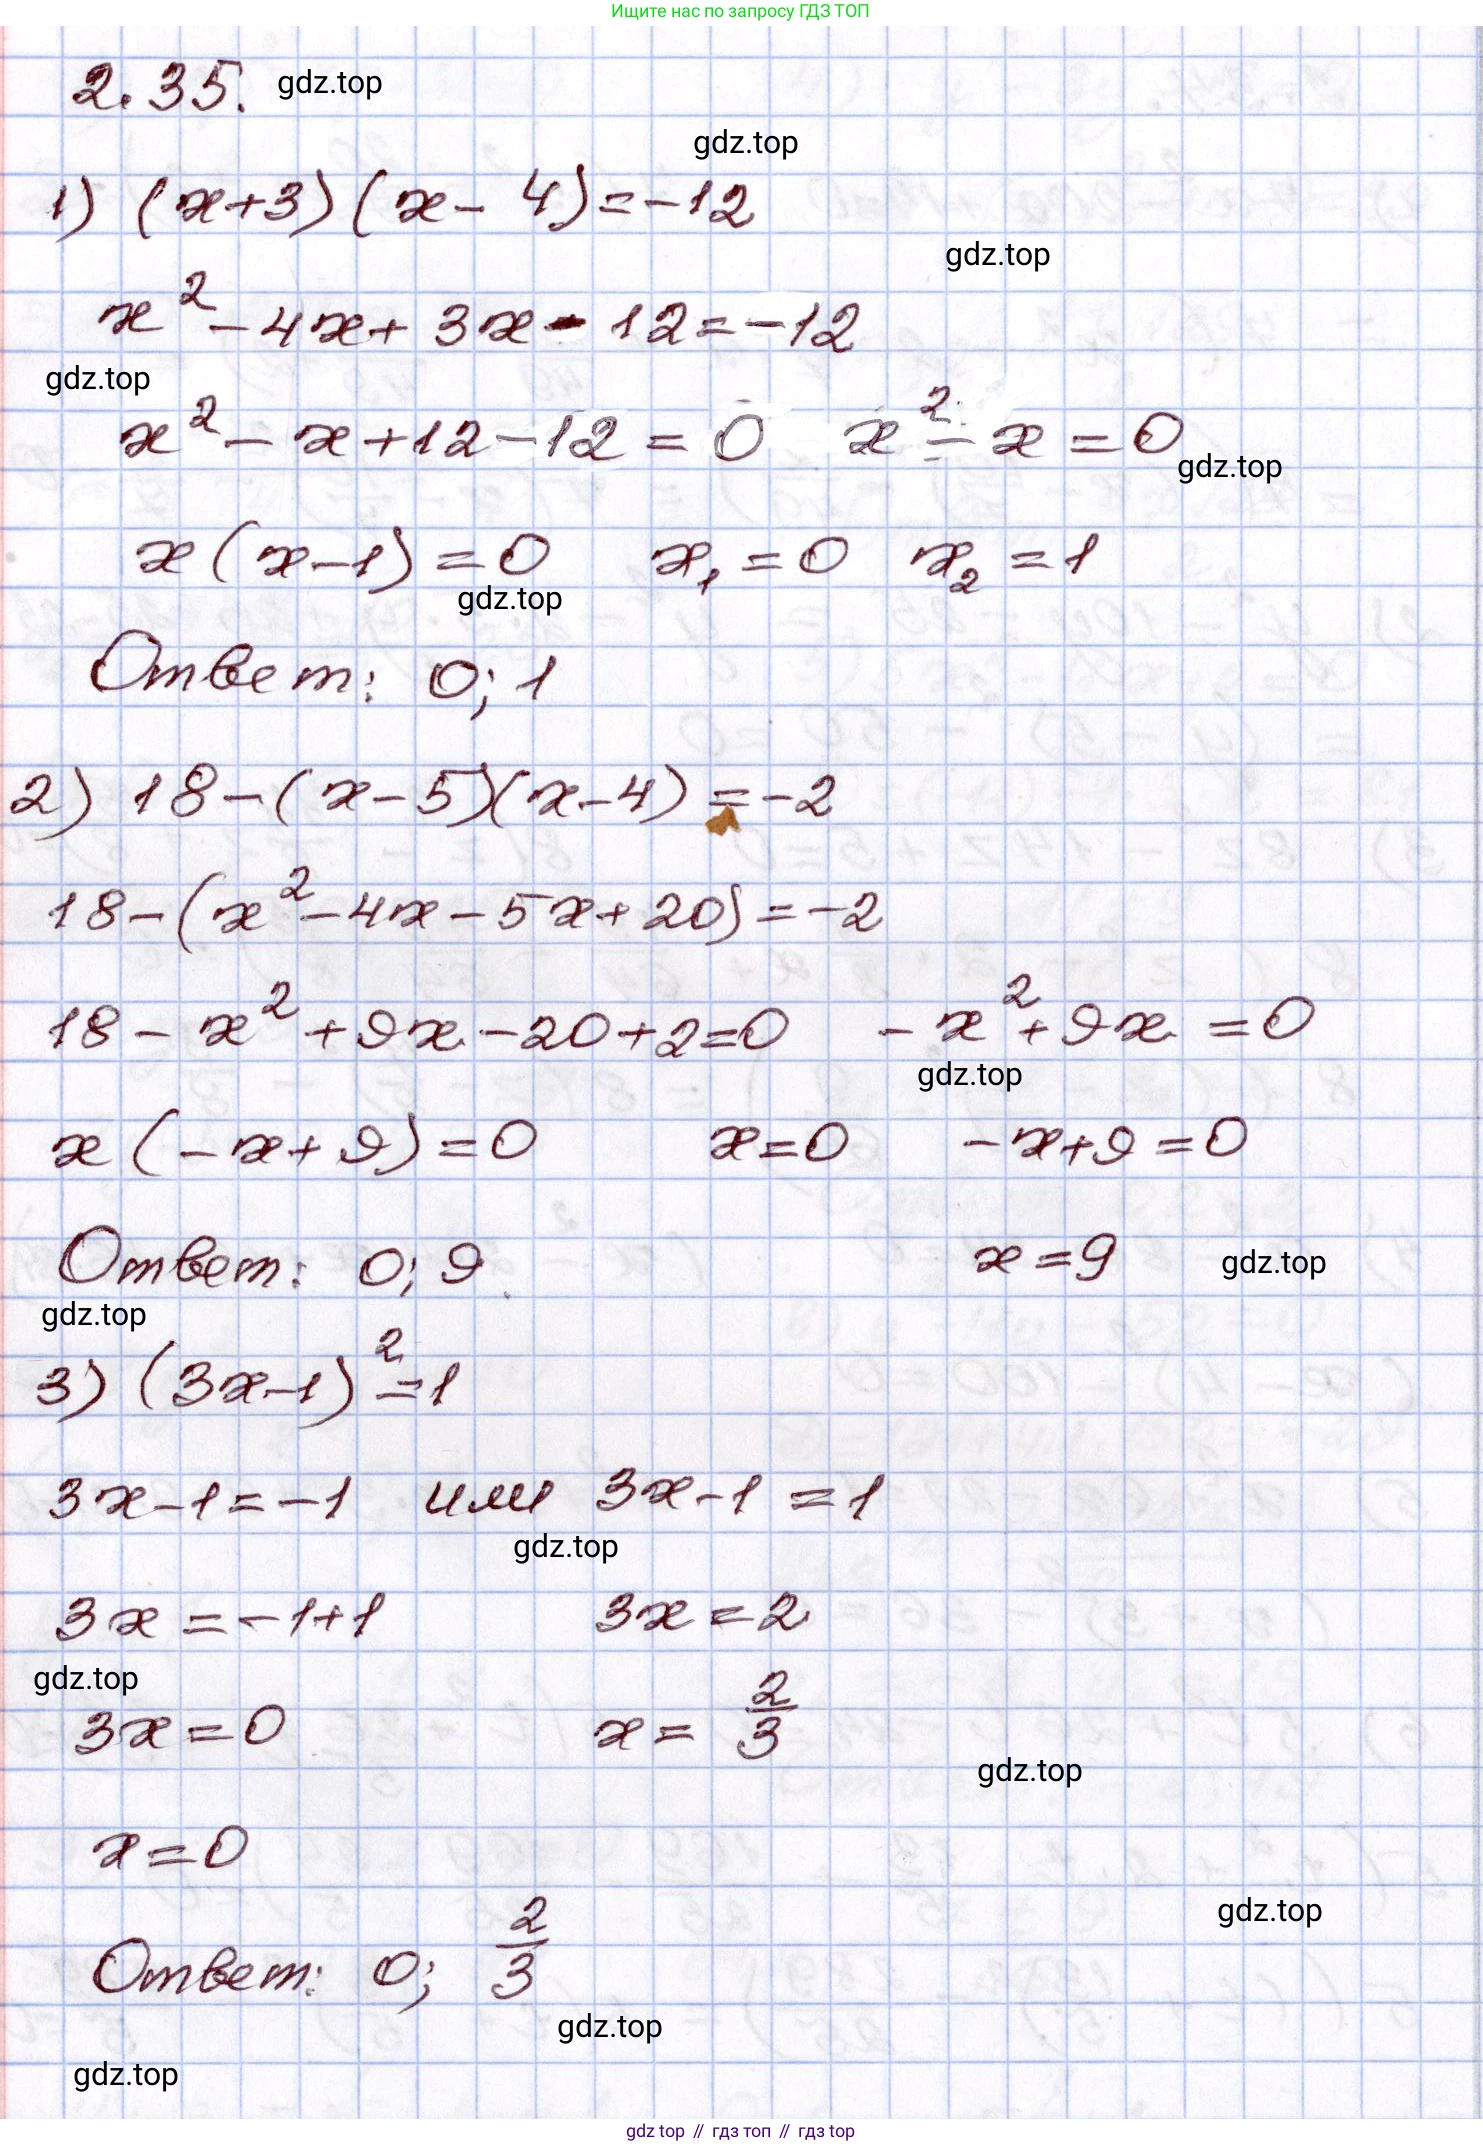 Ищите нас по запросу ГДЗ ТОП
2.35. gdz.top
gdz.top
1) (x+3)(x-4)=-12
gdz.top
x²-4x+3x-12=-12
gdz.top
x²-x+12-12=0 x²-x=0
gdz.top
x(x-1)=0 x₁=0 x₂=1
gdz.top
Ответ: 0; 1
2) 18-(x-5)(x-4)=-2
18-(x²-4x-5x+20)=-2
18-x²+9x-20+2=0 -x²+9x=0
gdz.top
x(-x+9)=0 x=0 -x+9=0
Ответ: 0; 9 x=9 gdz.top
gdz.top
3) (3x-1)²=1
3x-1=-1 или 3x-1=1
gdz.top
3x=-1+1 3x=2
gdz.top
3x=0 x=2/3
gdz.top
x=0
gdz.top
Ответ: 0; 2/3
gdz.top
gdz.top
gdz top // гдз топ // гдз top